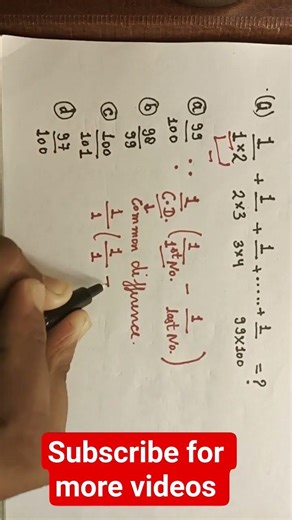 (Q) 1/1×2 + 1/2×3 + 1/3×4 + ..... + 1/99×100 = ?
(a) 99/100
(b) 98/99
(c) 100/101
(d) 97/100
∵ 1/C.D. (1/1st No. - 1/last No.)
Common difference.
1/1 (1/1 -
Subscribe for
more videos